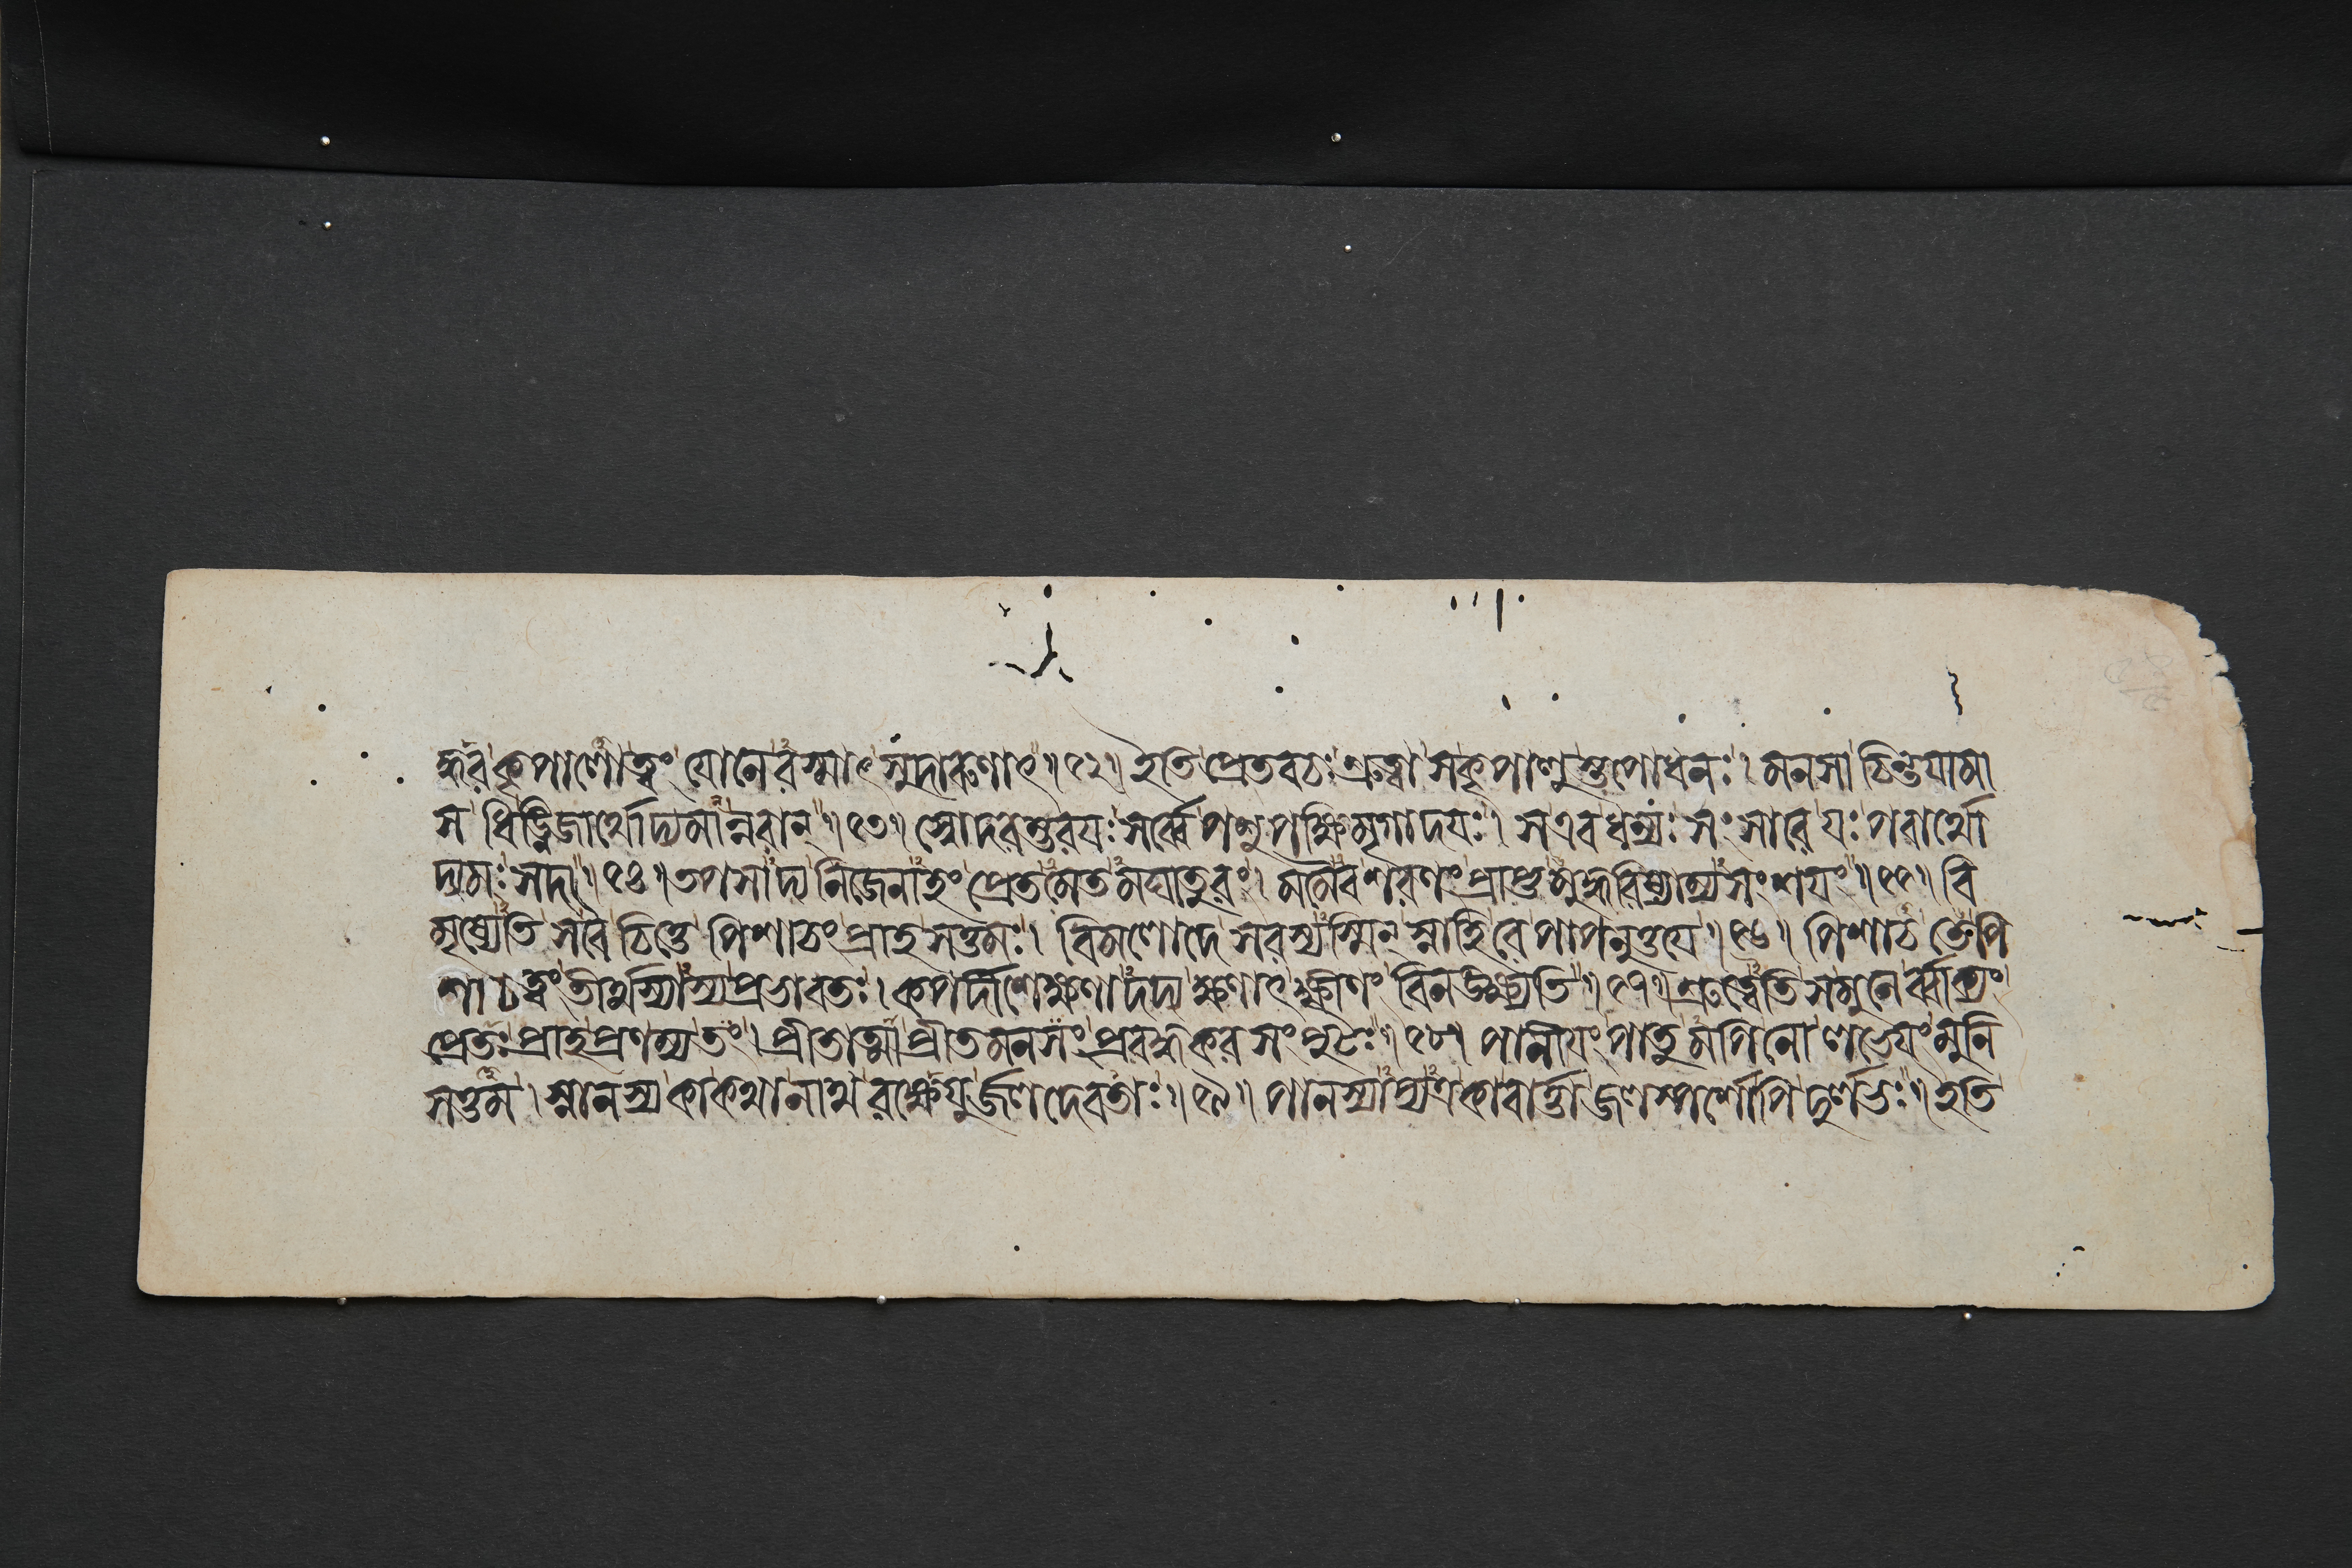 দ্ধর কৃপালো ত্বং যোনেরস্মাৎ সুদারুণাৎ॥৫২॥ ইতি প্রেতবচঃ শ্রুত্বা স কৃপালুস্তপোধনঃ। মনসা চিন্তয়ামা
স ধিঙ্নিজার্থোদ্যমান্নরান্॥৫৩॥ স্বোদরম্ভরযঃ সর্ব্বে পশুপক্ষিমৃগাদযঃ। স এব ধন্যঃ সংসারে যঃ পরার্থো
দ্যমঃ সদা॥৫৪॥ তপসাদ্য নিজেনাহং প্রেতমেতমঘাতুরং। মমৈব শরণং প্রাপ্তমুদ্ধরিষ্যাম্যসংশযং॥৫৫॥ বি
মৃষ্যেতি স বৈ চিত্তে পিশাচং প্রাহ সত্তমঃ। বিমলোদে সরস্যস্মিন্ স্নাহি রে পাপনুত্তযে॥৫৬॥ পিশাচ তে পি
শাচত্বং তীর্থস্যাস্য প্রভাবতঃ। কপর্দীশেক্ষণাদদ্য ক্ষণাৎ ক্ষীণং বিনঙ্ক্ষ্যতি॥৫৭॥ শ্রুত্বেতি স মুনের্ব্বাক্যং
প্রেতঃ প্রাহ প্রণম্য তং। প্রীতাত্মা প্রীতমনসং প্রবদ্ধকরসংপুটঃ॥৫৮॥ পানীযং পাতুমপি নো লভেযং মুনি
সত্তম। স্নানস্য কা কথা নাথ রক্ষেযুর্জলদেবতাঃ॥৫৯॥ পানস্যাপ্যত্র কা বার্ত্তা জলস্পর্শোপি দুর্লভঃ॥ ইতি